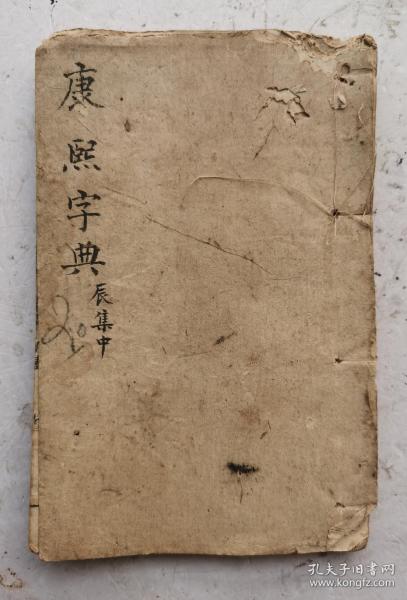 康熙字典
辰集中
孔夫子旧书网
www.kongfz.com